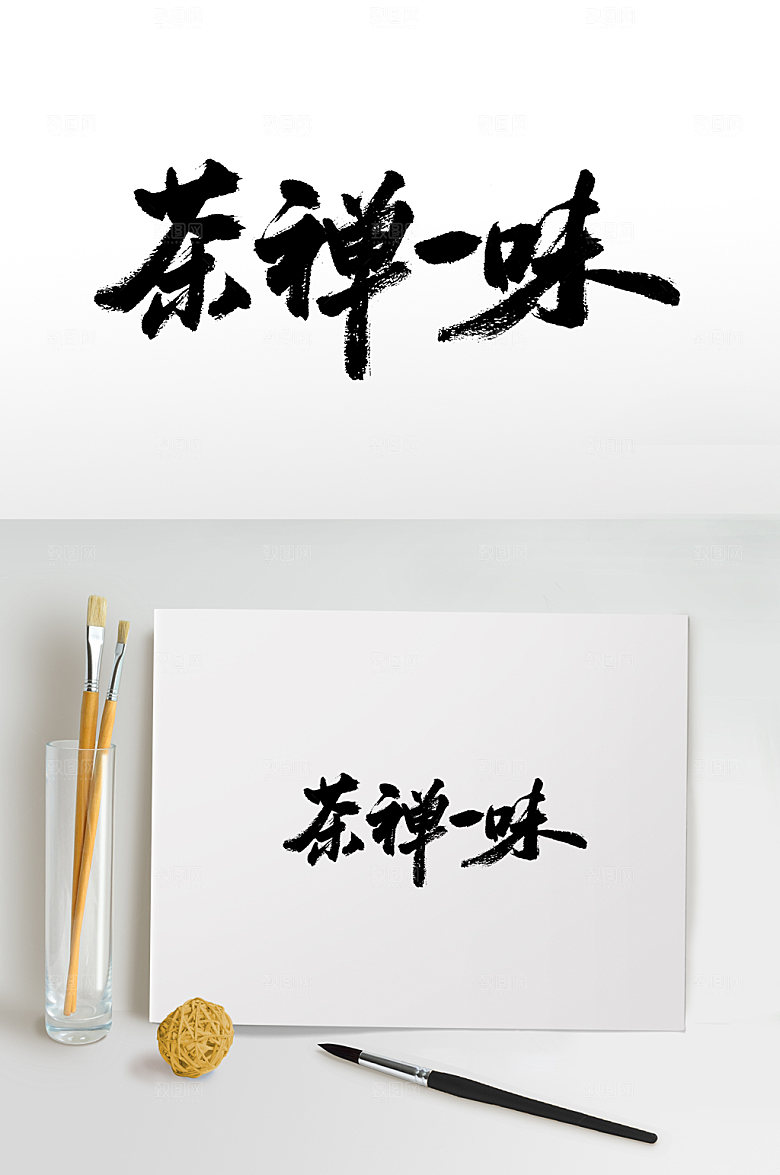 茶禅一味
茶禅一味